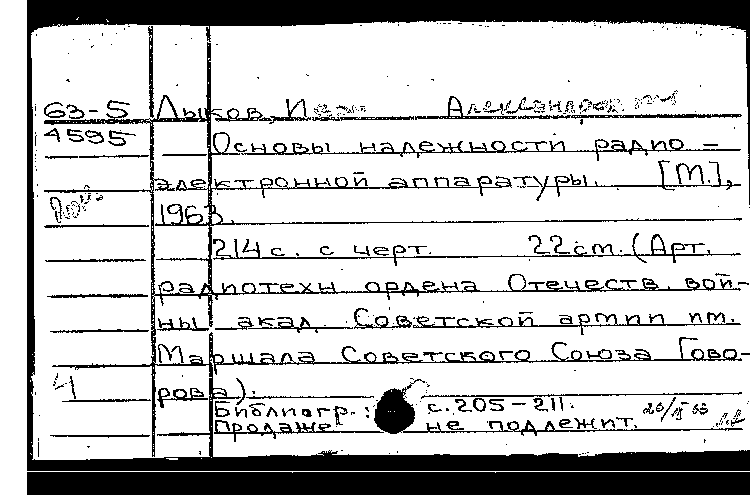 63-5 Лыков, Иван Александрович
4595 Основы надежности радио-
электронной аппаратуры. [М.],
1963.
214 с. с черт. 22 см. (Арт.
радиотехн ордена Отечеств. вой-
ны акад. Советской армии им.
Маршала Советского Союза Гово-
4 рова).
Библиогр.: с. 205-211.
Продаже не подлежит.